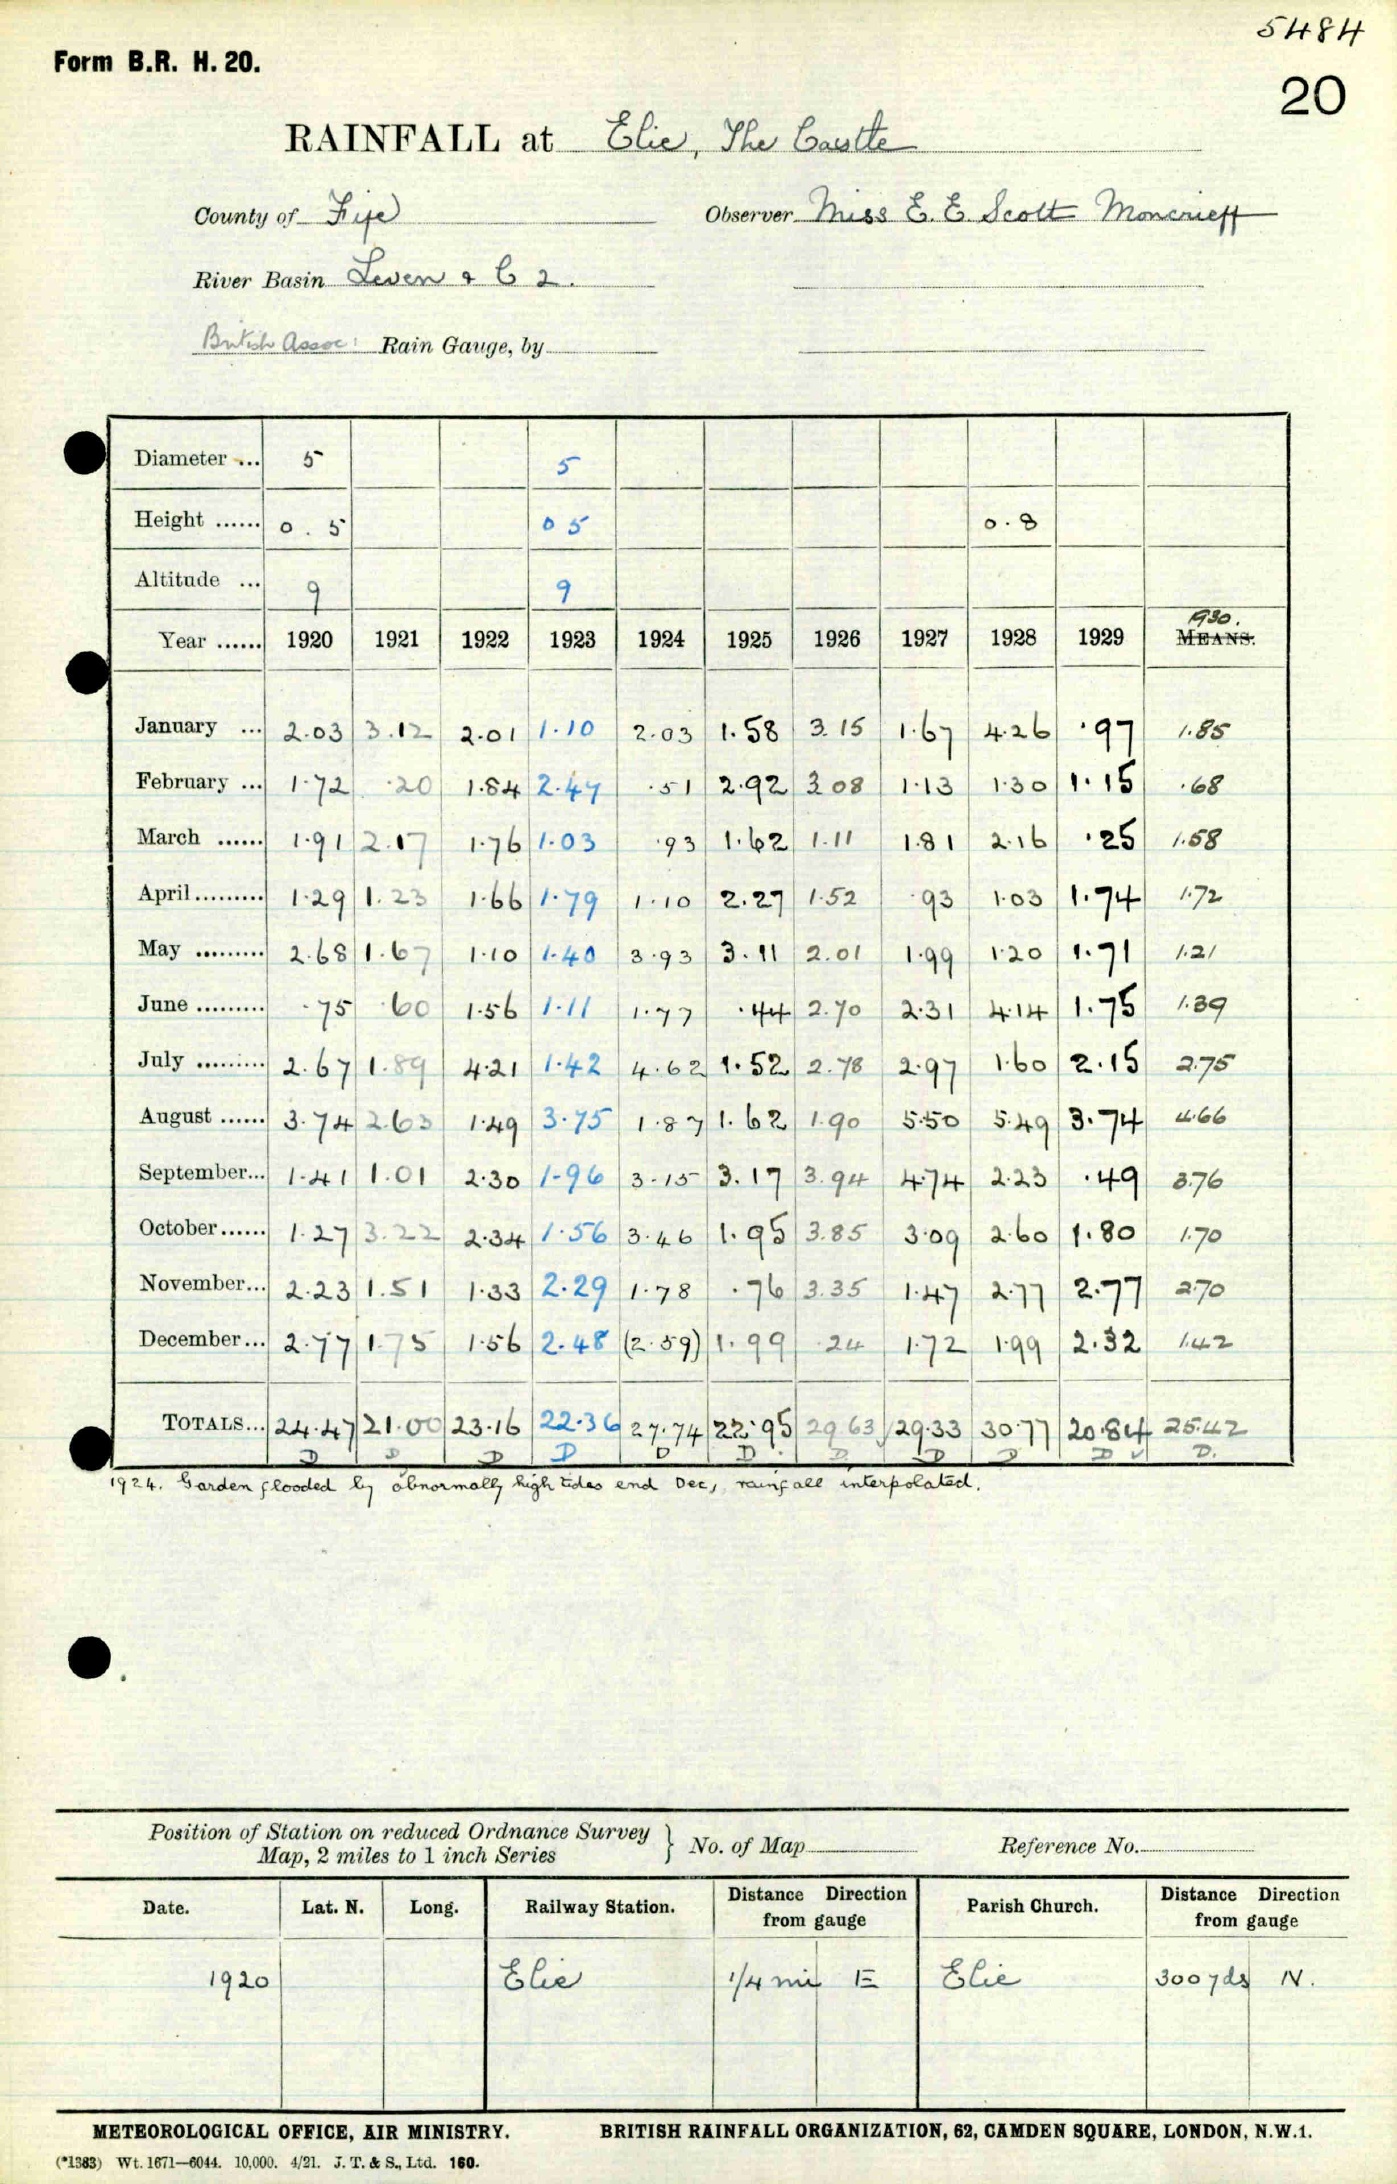 5484
Form B.R. H. 20.
20
RAINFALL at Elie, The Castle
County of Fife Observer Miss E. E. Scott Moncrieff
River Basin Leven & C 2.
British Assoc: Rain Gauge, by
Diameter ... 5 5
Height ...... 0.5 0 5 0.8
Altitude ... 9 9
1930.
Year ...... 1920 1921 1922 1923 1924 1925 1926 1927 1928 1929 MEANS.
January ... 2.03 3.12 2.01 1.10 2.03 1.58 3.15 1.67 4.26 .97 1.85
February ... 1.72 .20 1.84 2.47 .51 2.92 3 08 1.13 1.30 1.15 .68
March ...... 1.91 2.17 1.76 1.03 .93 1.62 1.11 1.81 2.16 .25 1.58
April ......... 1.29 1.23 1.66 1.79 1.10 2.27 1.52 .93 1.03 1.74 1.72
May ......... 2.68 1.67 1.10 1.40 3.93 3.11 2.01 1.99 1.20 1.71 1.21
June ......... .75 .60 1.56 1.11 1.77 .44 2.70 2.31 4.14 1.75 1.39
July ......... 2.67 1.89 4.21 1.42 4.62 1.52 2.78 2.97 1.60 2.15 2.75
August ...... 3.74 2.63 1.49 3.75 1.87 1.62 1.90 5.50 5.49 3.74 4.66
September... 1.41 1.01 2.30 1.96 3.15 3.17 3.94 4.74 2.23 .49 3.76
October...... 1.27 3.22 2.34 1.56 3.46 1.95 3.85 3.09 2.60 1.80 1.70
November... 2.23 1.51 1.33 2.29 1.78 .76 3.35 1.47 2.77 2.77 2.70
December... 2.77 1.75 1.56 2.48 (2.59) 1.99 .24 1.72 1.99 2.32 1.42
TOTALS... 24.47 21.00 23.16 22.36 27.74 22.95 29.63 29.33 30.77 20.84 25.42
D D D D D D D D D D D.
1924. Garden flooded by abnormally high tides end Dec, rainfall interpolated.
Position of Station on reduced Ordnance Survey
Map, 2 miles to 1 inch Series } No. of Map Reference No.
Date. Lat. N. Long. Railway Station. Distance Direction from gauge Parish Church. Distance Direction from gauge
1920 Elie 1/4 mi E Elie 300 yds N.
METEOROLOGICAL OFFICE, AIR MINISTRY. BRITISH RAINFALL ORGANIZATION, 62, CAMDEN SQUARE, LONDON, N.W.1.
(*1383) Wt. 1671—6044. 10,000. 4/21. J. T. & S., Ltd. 160.